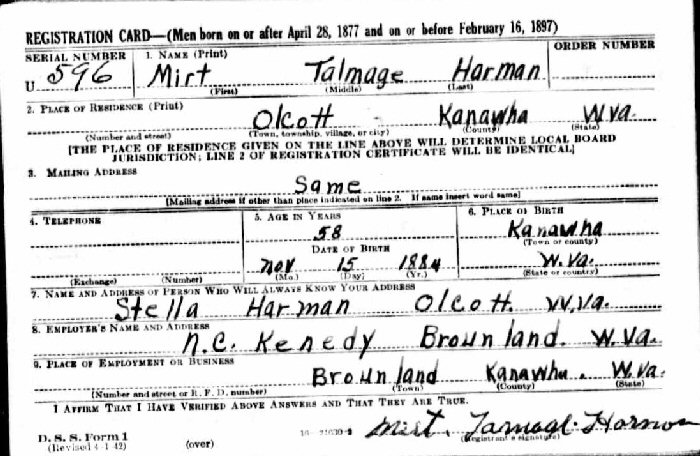 REGISTRATION CARD—(Men born on or after April 28, 1877 and on or before February 16, 1897)
SERIAL NUMBER 1. NAME (Print) ORDER NUMBER
U 596 Mirt Talmage Harman
(First) (Middle) (Last)
2. PLACE OF RESIDENCE (Print)
Olcott Kanawha W.Va.
(Number and street) (Town, township, village, or city) (County) (State)
[THE PLACE OF RESIDENCE GIVEN ON THE LINE ABOVE WILL DETERMINE LOCAL BOARD
JURISDICTION; LINE 2 OF REGISTRATION CERTIFICATE WILL BE IDENTICAL]
3. MAILING ADDRESS
Same
[Mailing address if other than place indicated on line 2. If same insert word same]
4. TELEPHONE 5. AGE IN YEARS 6. PLACE OF BIRTH
58 Kanawha
DATE OF BIRTH (Town or county)
Nov 15 1884 W.Va.
(Exchange) (Number) (Mo.) (Day) (Yr.) (State or country)
7. NAME AND ADDRESS OF PERSON WHO WILL ALWAYS KNOW YOUR ADDRESS
Stella Harman Olcott. W.Va.
8. EMPLOYER'S NAME AND ADDRESS
N.C. Kenedy Brounland. W.Va.
9. PLACE OF EMPLOYMENT OR BUSINESS
Brounland Kanawha. W.Va.
(Number and street or R. F. D. number) (Town) (County) (State)
I AFFIRM THAT I HAVE VERIFIED ABOVE ANSWERS AND THAT THEY ARE TRUE.
D. S. S. Form 1
(Revised 4-1-42) (over) Mirt. Harmon
(Registrant's signature)